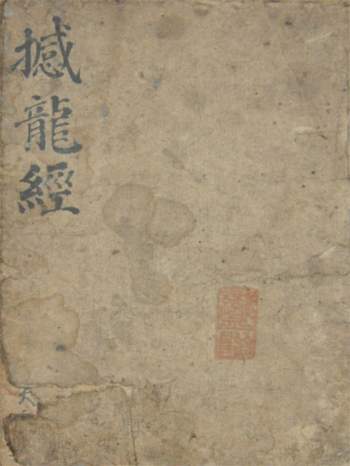 撼龍經
天